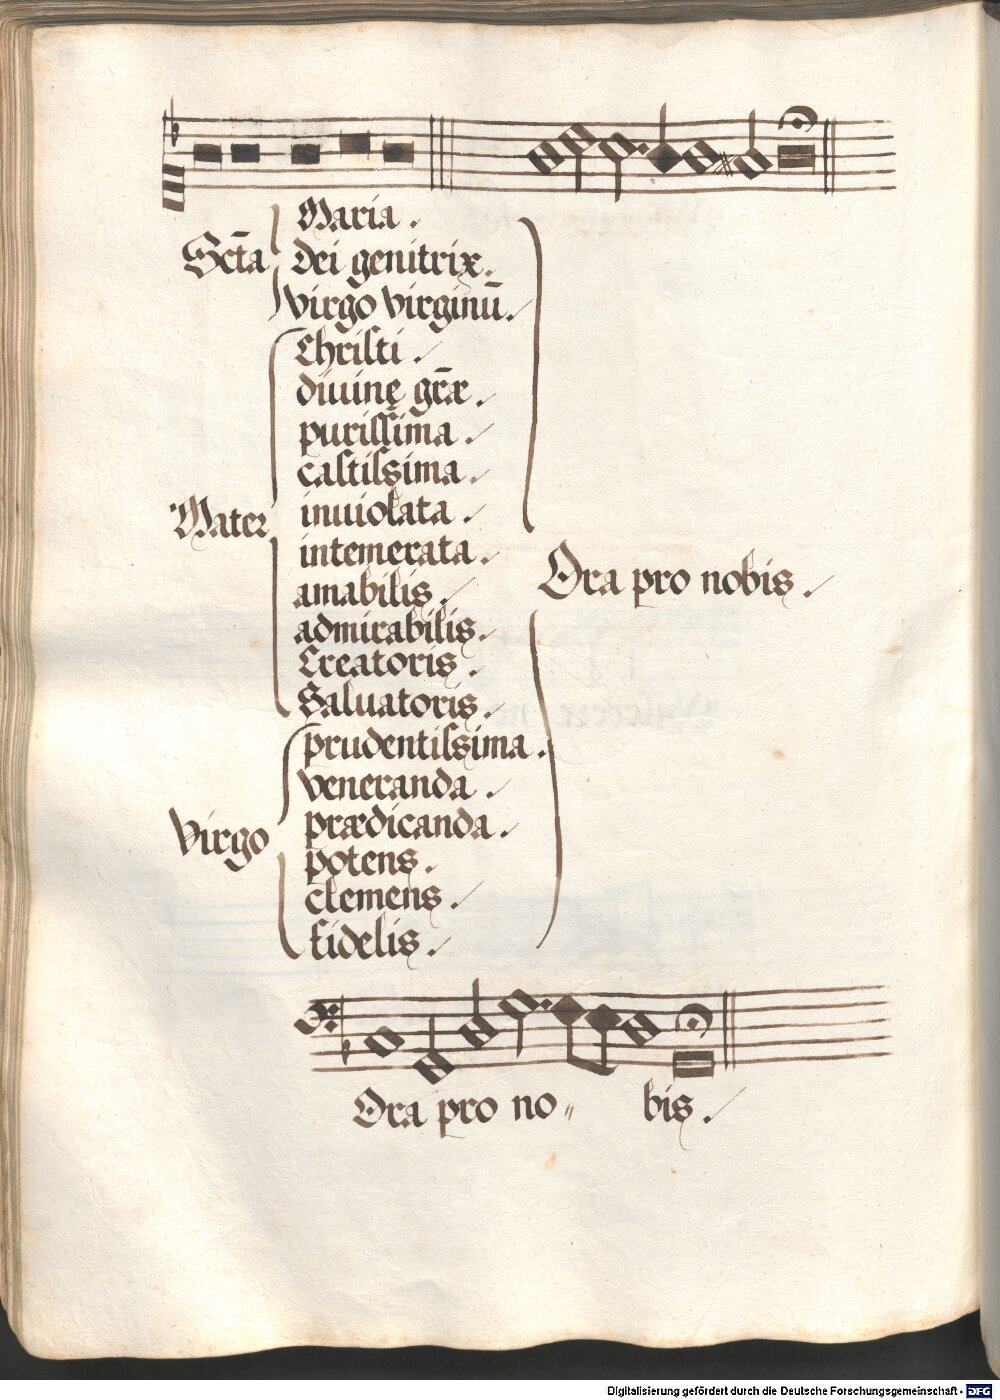 Maria.
Sctā dei genitrix.
virgo virginū.
Christi.
diuinę grē.
purissima.
castissima.
Mater inuiolata.
intemerata.
amabilis.
admirabilis.
Creatoris.
Saluatoris.
Ora pro nobis.
prudentissima.
veneranda.
Virgo prædicanda.
potens.
clemens.
fidelis.
Ora pro no„ bis.
Digitalisierung gefördert durch die Deutsche Forschungsgemeinschaft - DFG